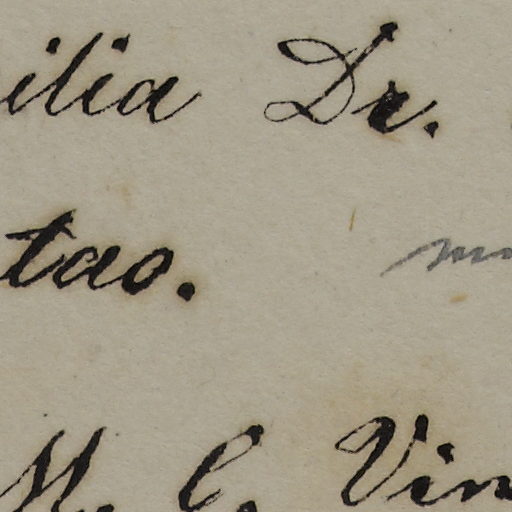 ilia Dr.
tao.
M. C. Vin